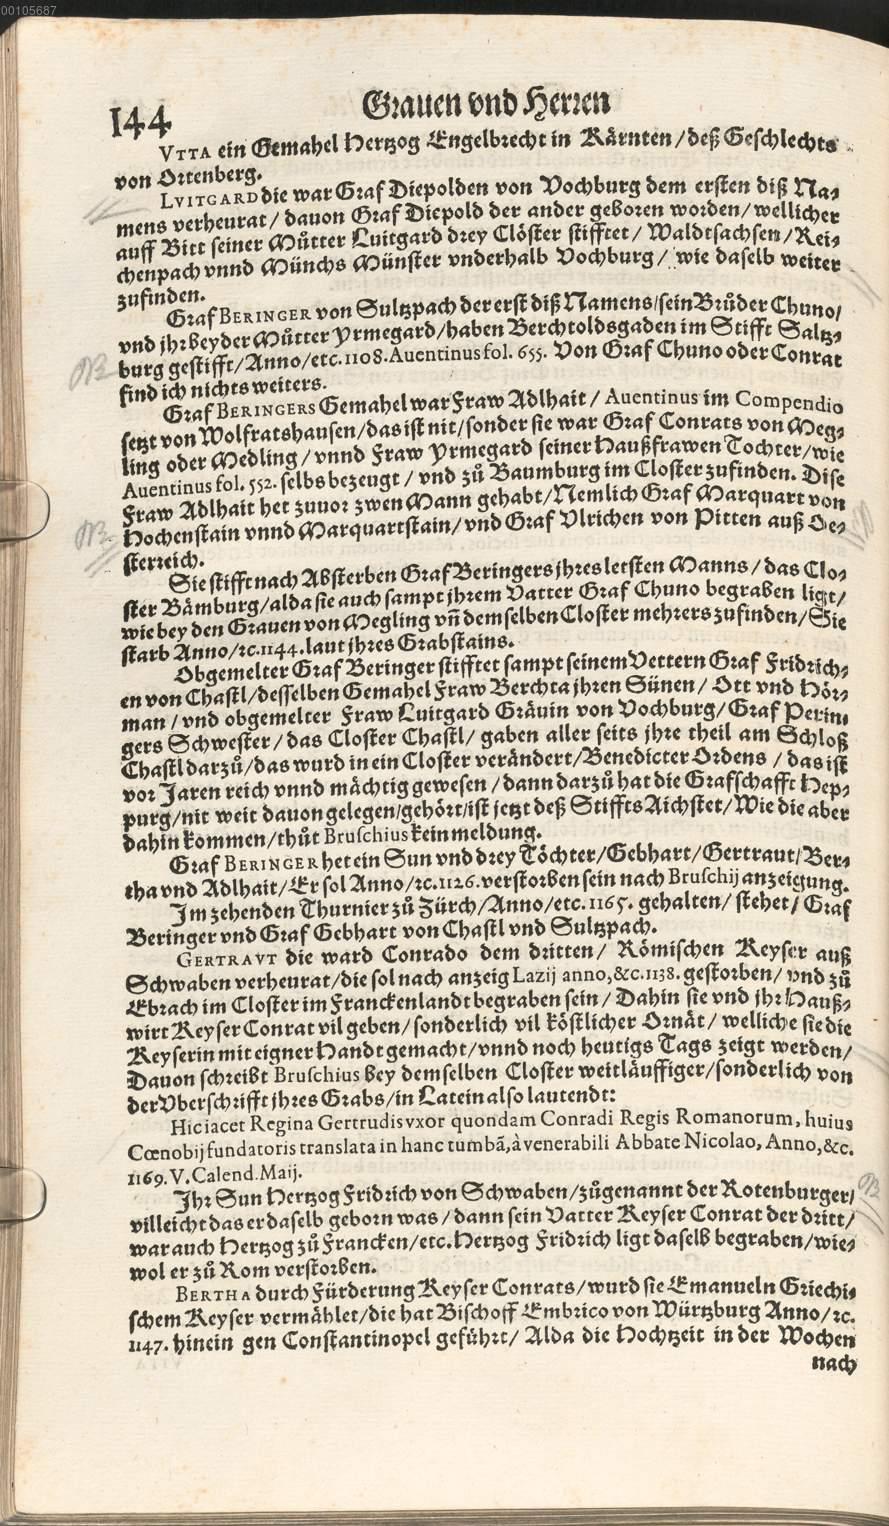 00105687
144
Grauen vnd Herren
VTTA ein Gemahel Hertzog Engelbrecht in Kärnten / deß Geschlechts
von Ortenberg.
LVITGARD die war Graf Diepolden von Vochburg dem ersten diß Na-
mens verheurat / dauon Graf Diepold der ander geboren worden / wellicher
auff Bitt seiner Můtter Luitgard drey Clöster stifftet / Waldtsachsen / Rei-
chenpach vnnd Münchs Münster vnderhalb Vochburg / wie daselb weiter
zufinden.
Graf BERINGER von Sultzpach der erst diß Namens / sein Brůder Chuno /
vnd jhr beyder Můtter Yrmegard / haben Berchtoldsgaden im Stifft Saltz-
burg gestifft / Anno / etc. 1108. Auentinus fol. 655. Von Graf Chuno oder Conrat
find ich nichts weiters.
Graf BERINGERS Gemahel war Fraw Adlhait / Auentinus im Compendio
setzt von Wolfratshausen / das ist nit / sonder sie war Graf Conrats von Meg-
ling oder Medling / vnnd Fraw Yrmegard seiner Haußfrawen Tochter / wie
Auentinus fol. 552. selbs bezeugt / vnd zů Baumburg im Closter zufinden. Dise
Fraw Adlhait het zuuor zwen Mann gehabt / Nemlich Graf Marquart von
Hochenstain vnnd Marquartstain / vnd Graf Vlrichen von Pitten auß Oe-
sterreich.
Sie stifft nach Absterben Graf Beringers jhres letsten Manns / das Clo-
ster Bämburg / alda sie auch sampt jhrem Vatter Graf Chuno begraben ligt /
wie bey den Grauen von Megling vñ demselben Closter mehrers zufinden / Sie
starb Anno / ꝛc. 1144. laut jhres Grabstains.
Obgemelter Graf Beringer stifftet sampt seinem Vettern Graf Fridrich-
en von Chastl / desselben Gemahel Fraw Berchta jhren Sünen / Ott vnd Hör-
man / vnd obgemelter Fraw Luitgard Gräuin von Vochburg / Graf Perin-
gers Schwester / das Closter Chastl / gaben aller seits jhre theil am Schloß
Chastl darzů / das wurd in ein Closter verändert / Benedicter Ordens / das ist
vor Jaren reich vnnd mächtig gewesen / dann darzů hat die Grafschafft Hep-
purg / nit weit dauon gelegen / gehört / ist jetzt deß Stiffts Aichstet / Wie die aber
dahin kommen / thůt Bruschius kein meldung.
Graf BERINGER het ein Sun vnd drey Töchter / Gebhart / Gertraut / Ber-
tha vnd Adlhait / Er sol Anno / ꝛc. 1126. verstorben sein nach Bruschij anzeigung.
Im zehenden Thurnier zů Zürch / Anno / etc. 1165. gehalten / stehet / Graf
Beringer vnd Graf Gebhart von Chastl vnd Sultzpach.
GERTRAVT die ward Conrado dem dritten / Römischen Keyser auß
Schwaben verheurat / die sol nach anzeig Lazij anno, &c. 1138. gestorben / vnd zů
Ebrach im Closter im Franckenlandt begraben sein / Dahin sie vnd jhr Hauß-
wirt Keyser Conrat vil geben / sonderlich vil köstlicher Ornät / welliche sie die
Keyserin mit eigner Handt gemacht / vnnd noch heutigs Tags zeigt werden /
Dauon schreibt Bruschius bey demselben Closter weitläuffiger / sonderlich von
der Vberschrifft jhres Grabs / in Latein also lautendt:
Hic iacet Regina Gertrudis vxor quondam Conradi Regis Romanorum, huius
Cœnobij fundatoris translata in hanc tumbã, à venerabili Abbate Nicolao, Anno, &c.
1169. V. Calend. Maij.
Ihr Sun Hertzog Fridrich von Schwaben / zůgenannt der Rotenburger /
villeicht das er daselb geborn was / dann sein Vatter Keyser Conrat der dritt /
war auch Hertzog zů Francken / etc. Hertzog Fridrich ligt daselb begraben / wie-
wol er zů Rom verstorben.
BERTHA durch Fürderung Keyser Conrats / wurd sie Emanueln Griechi-
schem Keyser vermählet / die hat Bischoff Embrico von Würtzburg Anno / ꝛc.
1147. hinein gen Constantinopel geführt / Alda die Hochtzeit in der Wochen
nach